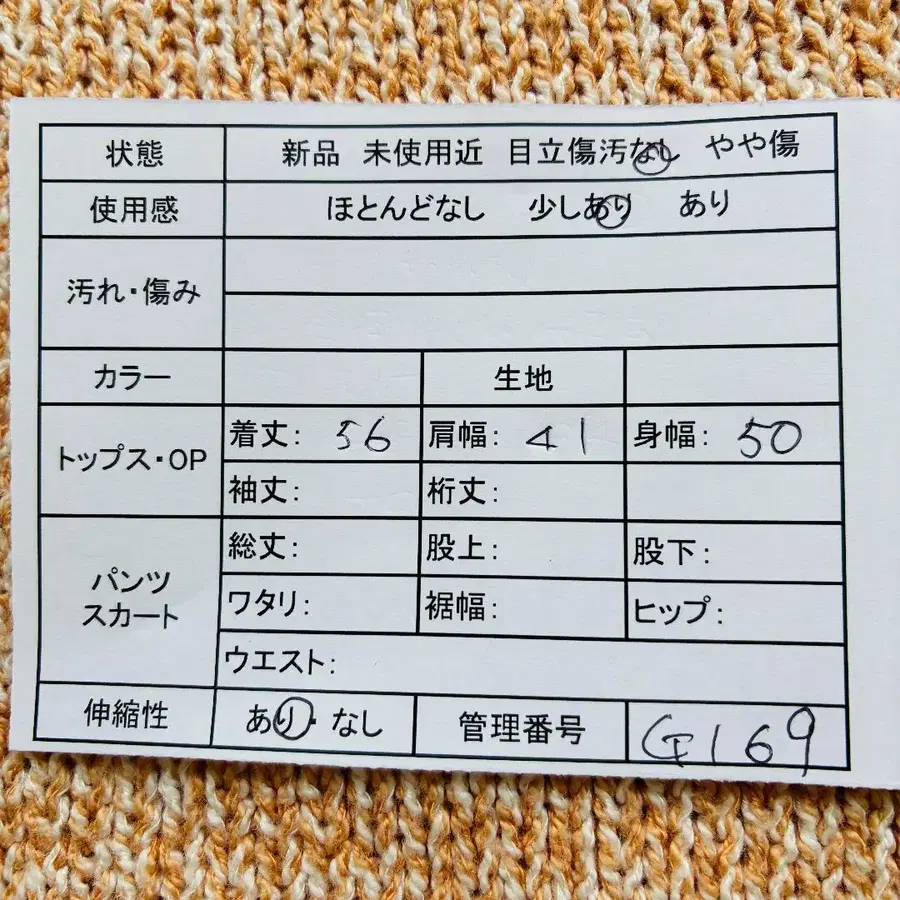 状態 新品 未使用近 目立傷汚なし やや傷
使用感 ほとんどなし 少しあり あり
汚れ・傷み
カラー 生地
トップス・OP
着丈: 56 肩幅: 41 身幅: 50
袖丈: 裄丈:
パンツ
スカート
総丈: 股上: 股下:
ワタリ: 裾幅: ヒップ:
ウエスト:
伸縮性 あり・なし 管理番号 G169